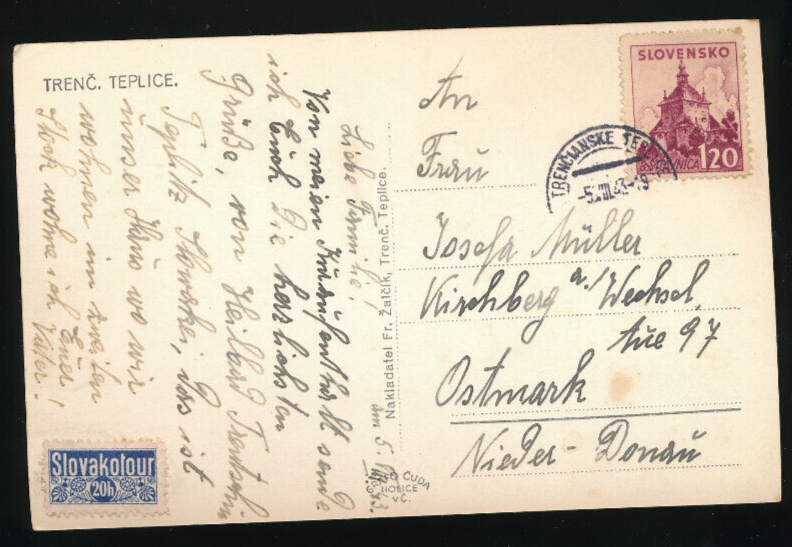 TRENČ. TEPLICE.
Liebe Familie!
Von meien Kuraufenthalt sende
ich Euch Die herzlichsten
Grüße, von Heilbad Trentschin
Teplitz Slowakei, Das ist
unser Haus wo wir
wohnen im zweiten
Stock wohne ich Euer
Vater.
am 5. III. 43.
Slovakotour
20h
Nakladatel Fr. Žatčík, Trenč. Teplice.
FOTO ČUDA
HOLICE
V Č.
SLOVENSKO
ŠTIAVNICA 120
TRENČIANSKE TEPLICE
-5.III.43-19
An
Frau
Josefa Müller
Kirchberg a/ Wechsel
Aue 97
Ostmark
Nieder-Donau